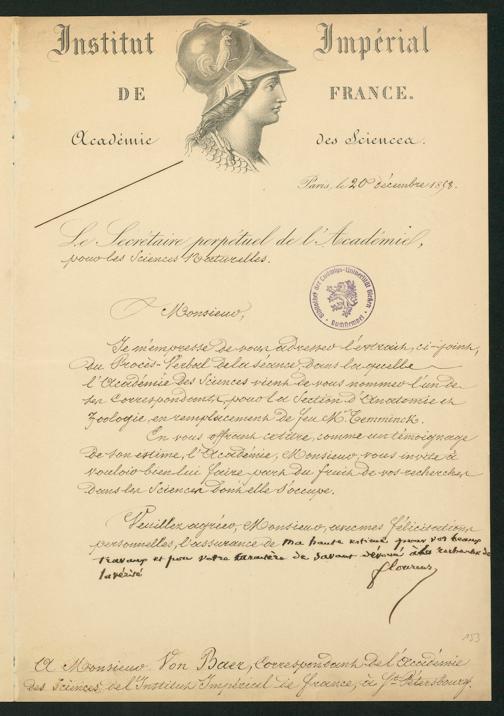 Institut Impérial
DE FRANCE.
Académie des Sciences.
Paris, le 20 décembre 1858.
Le Secrétaire perpétuel de l'Académie,
pour les Sciences Naturelles.
Bibliothek der Ludwigs-Universität Giessen
Monsieur,
Je m'empresse de vous adresser l'extrait, ci-joint,
du Procès-Verbal de la séance dans laquelle
l'Académie des Sciences vient de vous nommer l'un de
ses Correspondants, pour la Section d'Anatomie et
Zoologie, en remplacement de feu Mr Temminck.
En vous offrant ce titre, comme un témoignage
de son estime, l'Académie, Monsieur, vous invite à
vouloir bien lui faire part du fruit de vos recherches
dans les Sciences dont elle s'occupe.
Veuillez agréer, Monsieur, avec mes félicitations
personnelles, l'assurance de ma haute estime pour vos beaux
travaux et pour votre caractère de savant dévoué à la recherche de
la vérité
flourens
153
A Monsieur Von Baer, Correspondant de l'Académie
des Sciences, de l'Institut Impérial de France, à St. Pétersbourg.